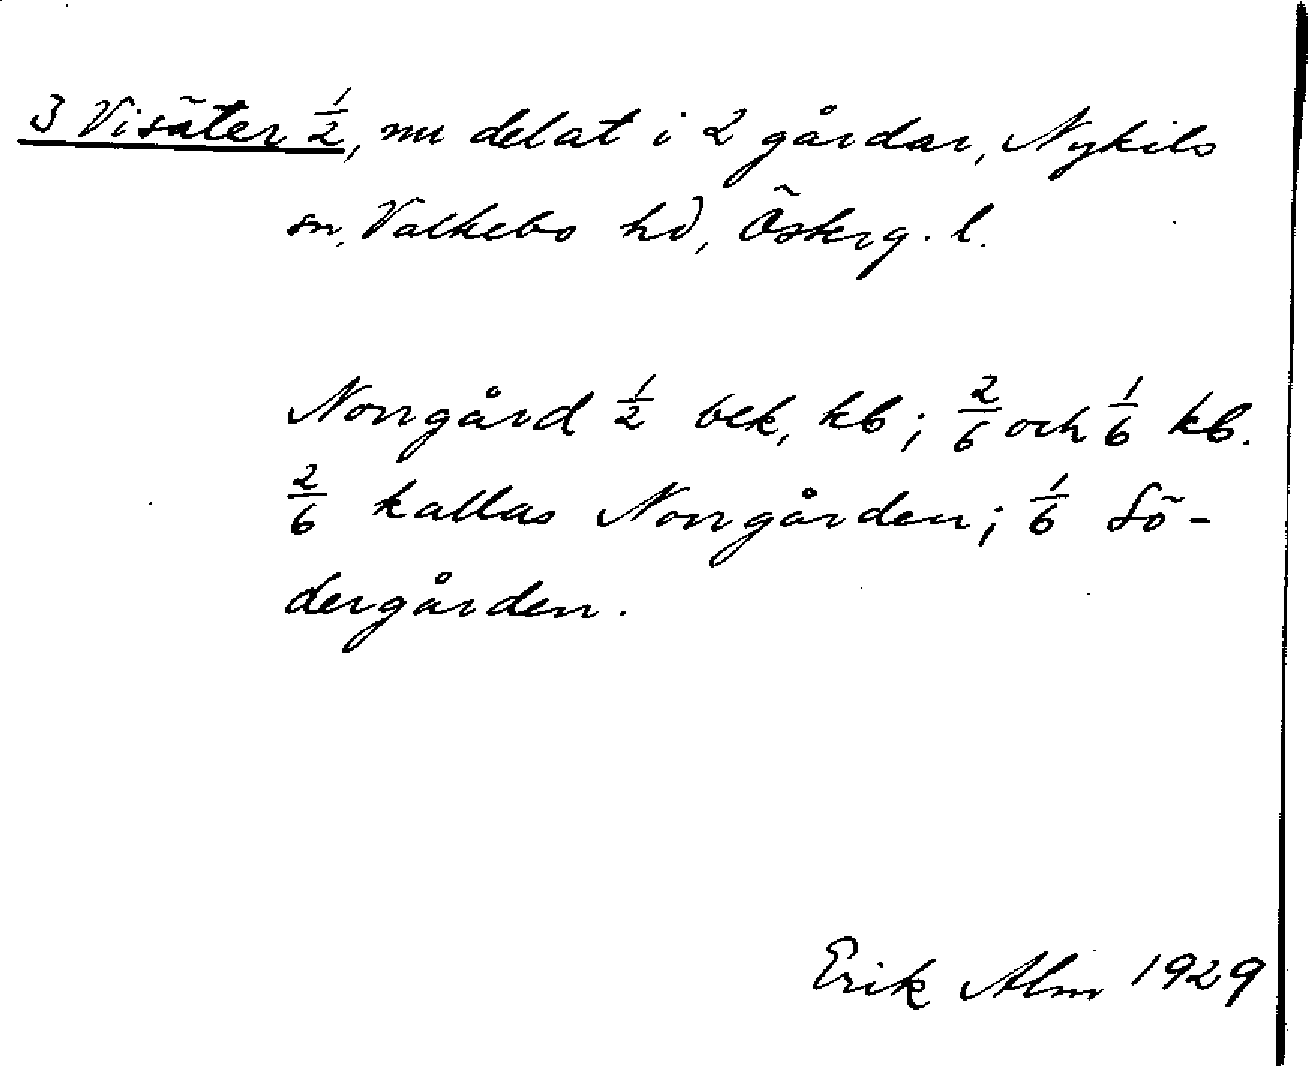 3 Visäter 1/2, nu delat i 2 gårdar, Nykils
sn, Valkebo hd, Österg. l.
Norrgård 1/2 bek, kb; 2/6 och 1/6 kb.
2/6 kallas Norrgården; 1/6 Sö-
dergården.
Erik Alm 1929